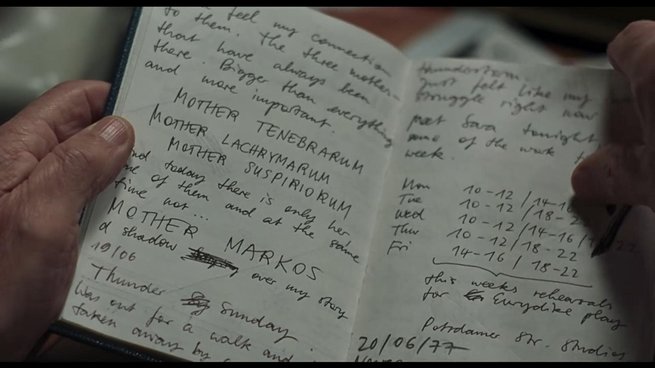 feel my connection
to them. The three mothers
that have always been
there. Bigger than everything
and more important.
MOTHER TENEBRARUM
MOTHER LACHRYMARUM
MOTHER SUSPIRIORUM
and today there is only her
one of them and at the same
time not...
MOTHER MARKOS
a shadow over my story
19/06
Thunder Sunday.
Was out for a walk and
taken away by
thunderstorm.
Just felt like my
struggle right now
meet Sara tonight
some of the work
week.
Mon 10-12 / 14-1
Tue 10-12 / 18-2
Wed 10-12 / 14-16 / 22
Thur 10-12 / 18-22
Fri 14-16 / 18-22
this weeks rehearsals
for Eurydike play
Potsdamer Str. Studios
20/06/77